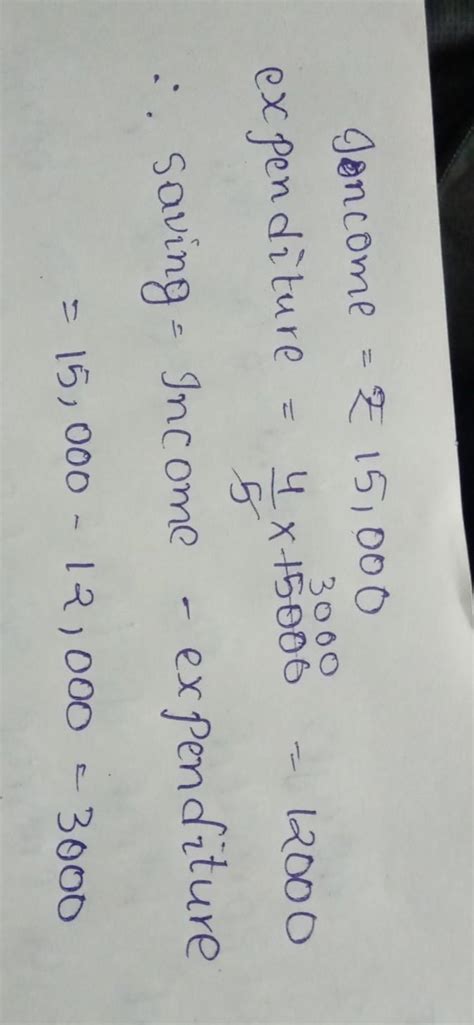 Income = ₹ 15,000
expenditure = 4/5 × 15000 3000 = 12000
∴ saving = Income - expenditure
= 15,000 - 12,000 = 3000